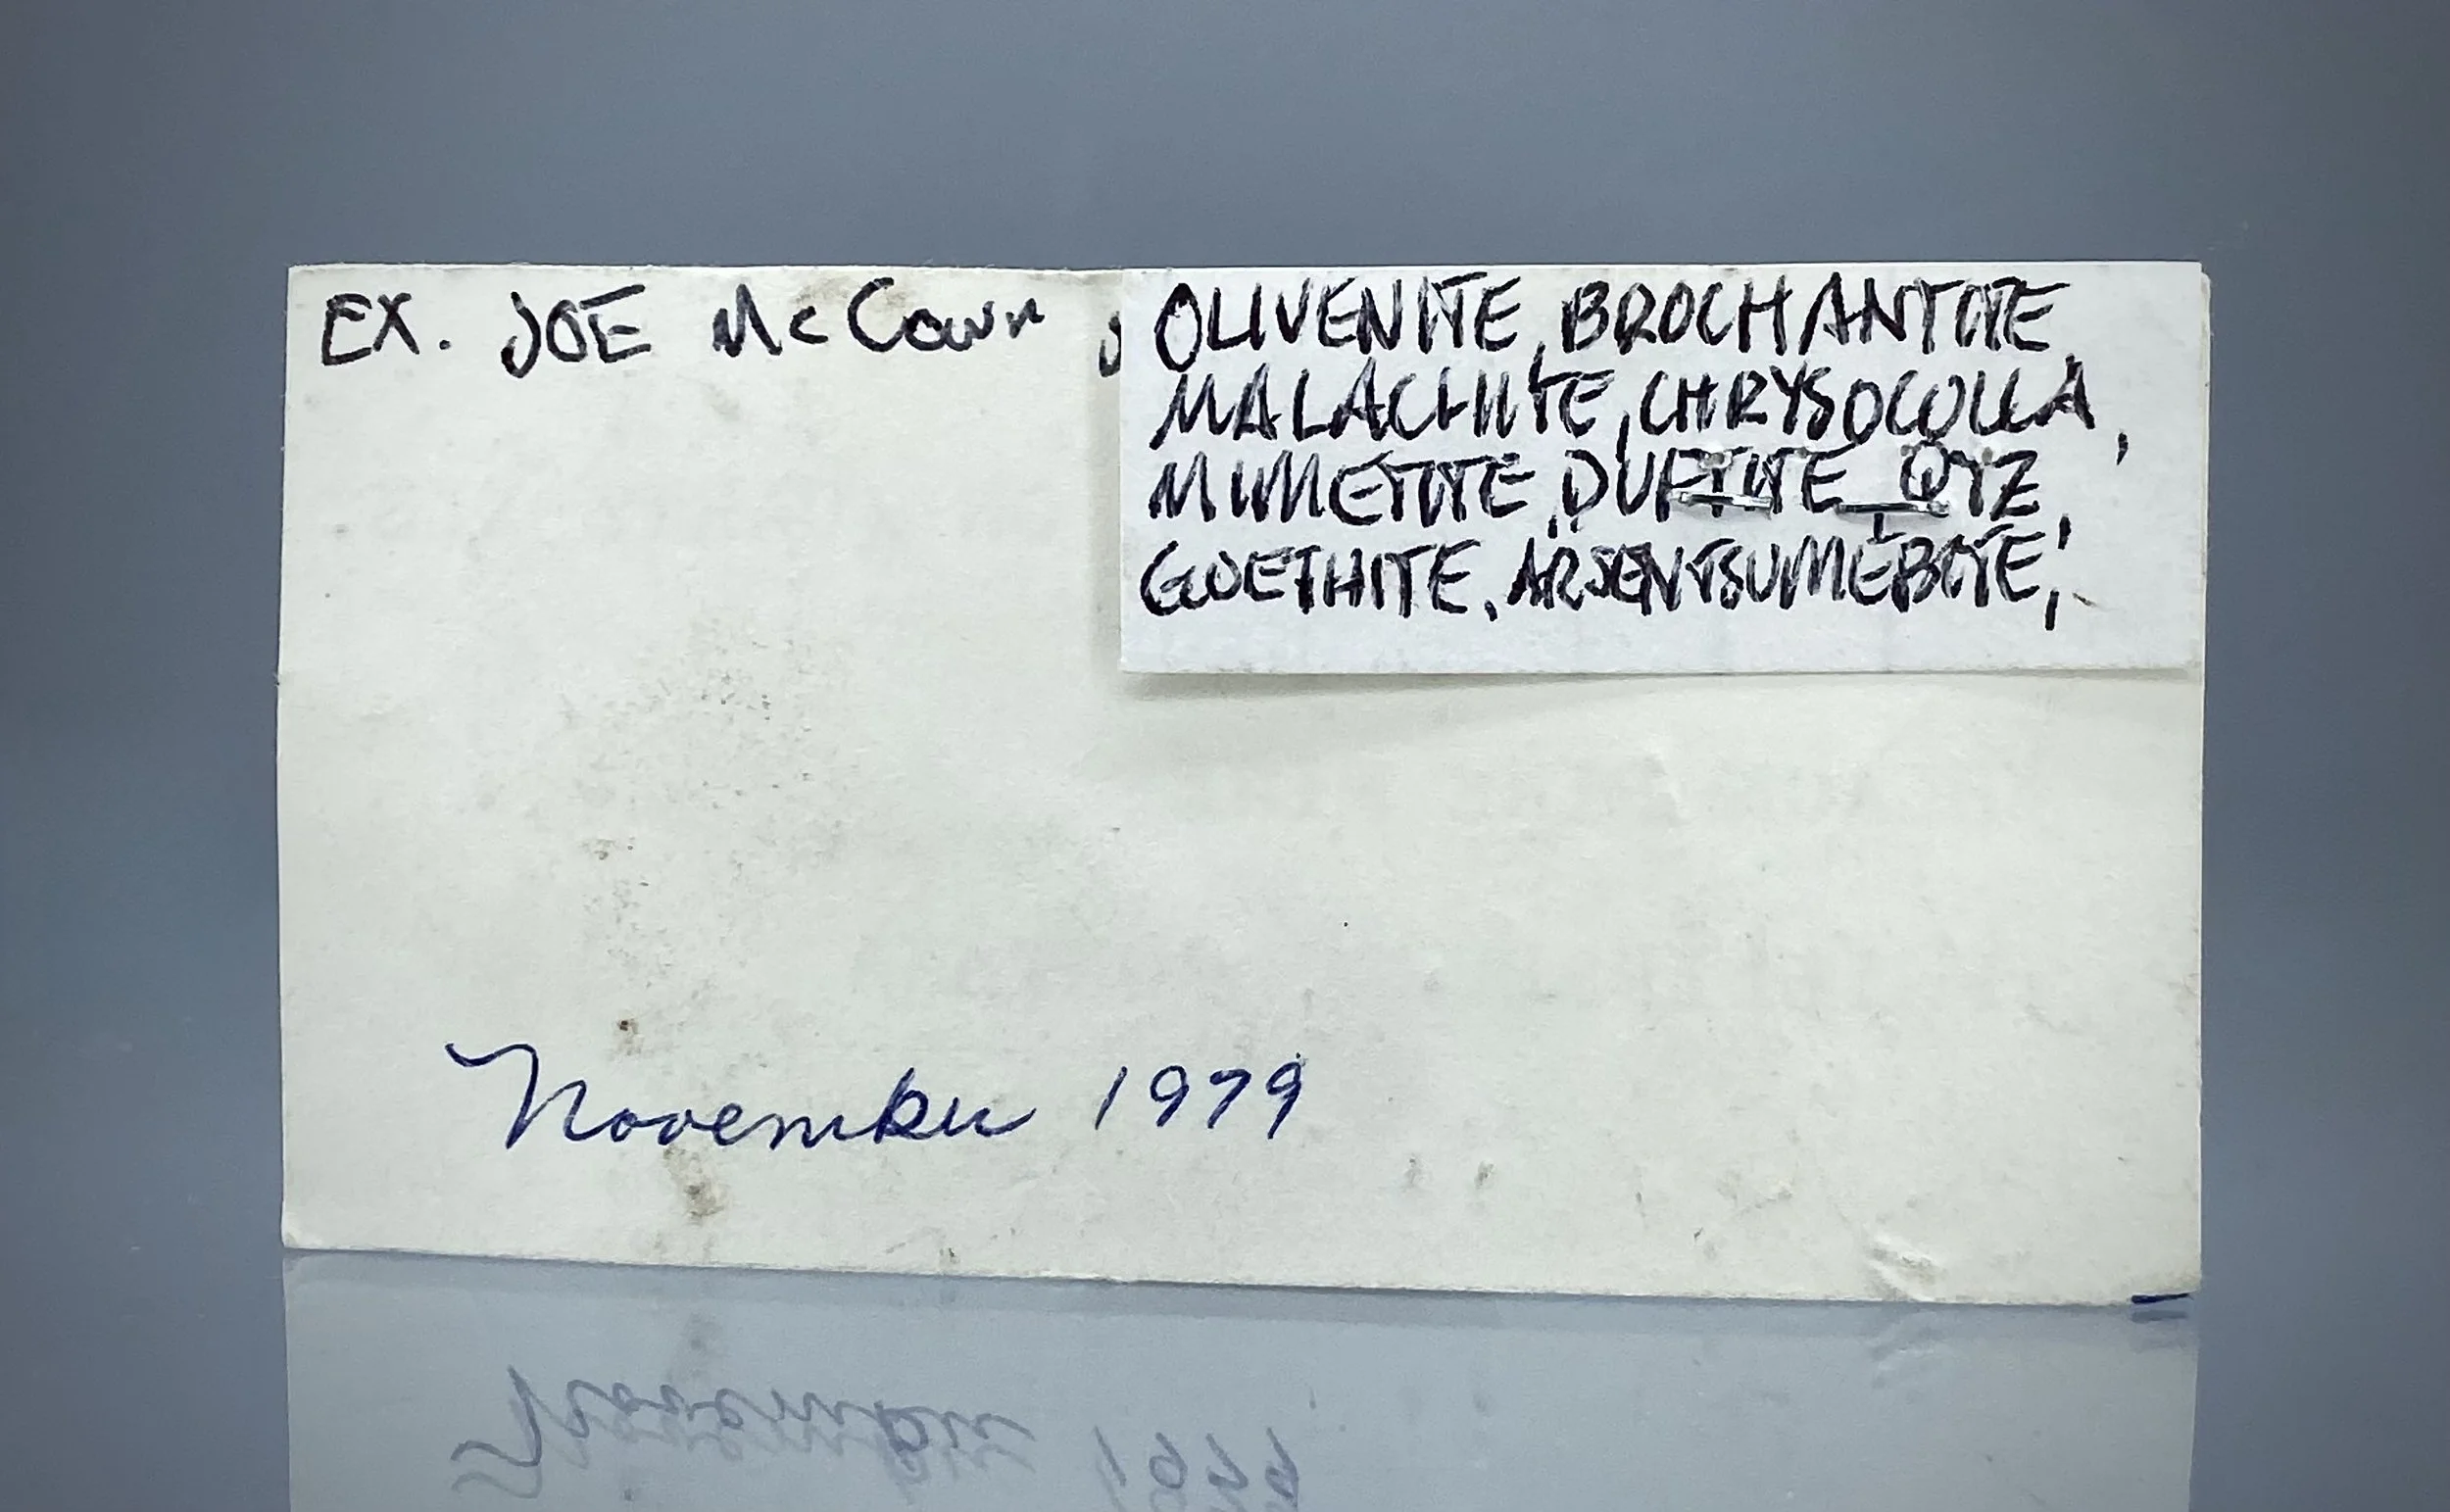 EX. JOE McCown
OLIVENITE, BROCHANTITE,
MALACHITE, CHRYSOCOLLA,
MIMETITE, DUFTITE, QTZ,
GOETHITE, ARSENTSUMEBITE,
November 1979